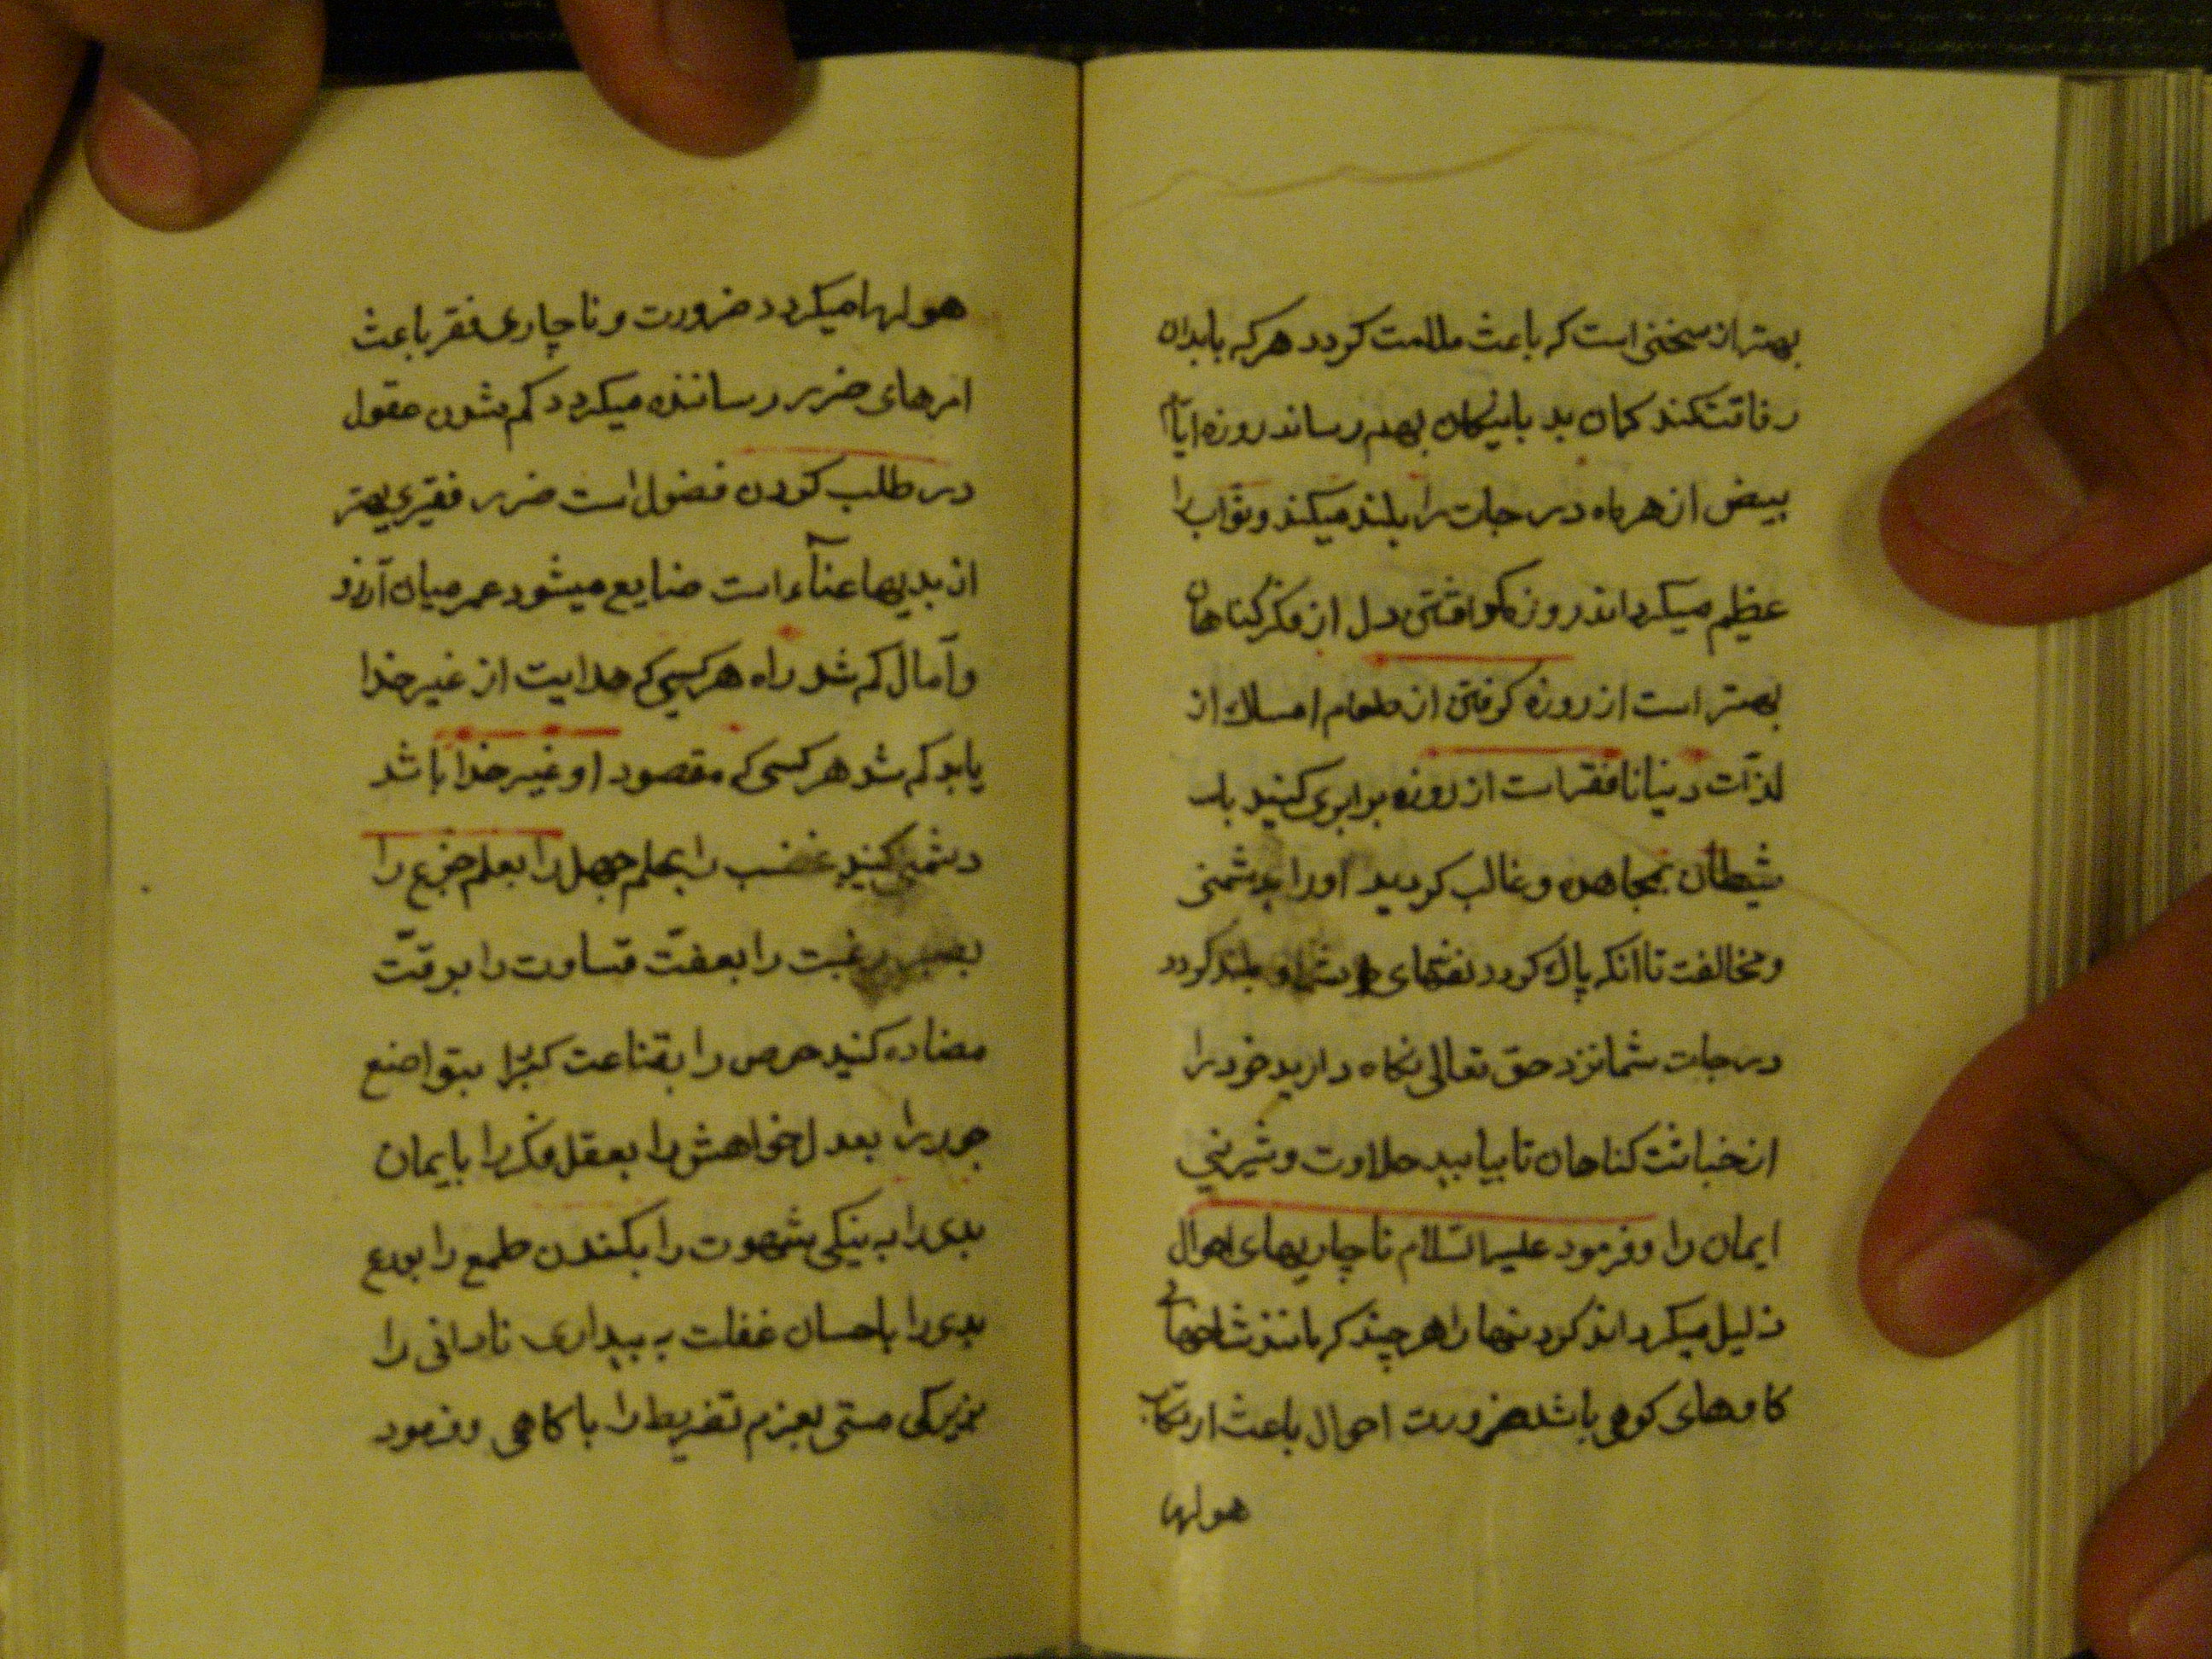 بهتر از سخنی است که باعث ملالمت کردد هر که بابدان
رفاقت کند کمان بد بانیکان بهم رساند روزه ایام
بیض از هر ماه درجات را بلند میکند و ثواب را
عظیم میکرداند روزه کرفتن دل از فکر کناهان
بهتر است از روزه کرفتن از طعام امساک از
لذات دنیا نافعتر است از روزه برابری کنید با
شیطان بمجاهده و غالب کردید او را بدشمنی
و مخالفت تا انکه پاک کردد نفسهای شما و بلند کردد
درجات شما نزد حق تعالی نکاه دارید خود را
از خباثت کناهان تا بیابید حلاوت و شیرینی
ایمان را و فرمود علیه السلام ناچاریهای احوال
ذلیل میکرداند کردنها را هر چند که مانند شاخهای
کاوهای کوهی باشد ضرورت احوال باعث ارتکاب
هولها
هولها میکردد ضرورت و ناچاری فقر باعث
امرهای ضرر رساننده میکردد کم شدن عقول
در طلب کردن فضول است ضرر فقیری بهتر
از بدیهاء غناء است ضایع میشود عمر میان آرزو
و آمال کم شد راه هر کسی که هدایت از غیر خدا
یابد کم شد هر کسی که مقصود او غیر خدا باشد
دشمنی کنید غضب را بحلم جهل را بعلم جزع را
بصبر رغبت را بعفّت قساوت را برقّت
مضاده کنید حرص را بقناعت کبر را بتواضع
جور را بعدل خواهش را بعقل فکر را بایمان
بدی را به نیکی شهوت را بکندن طمع را بورع
بدی را باحسان غفلت به بیداری نادانی را
بزیرکی سستی بعزم تفریط را باکاهی و فرمود